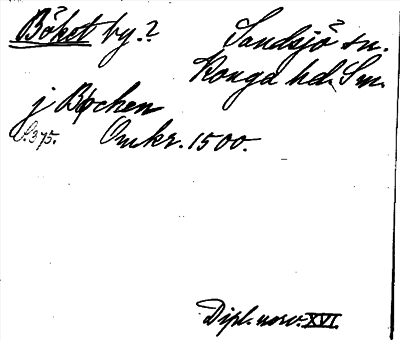 Böket by.? Sandsjö sn.
Konga hd. Sm.
j Bøchen
S. 375. Omkr. 1500.
Dipl. norv. XVI.